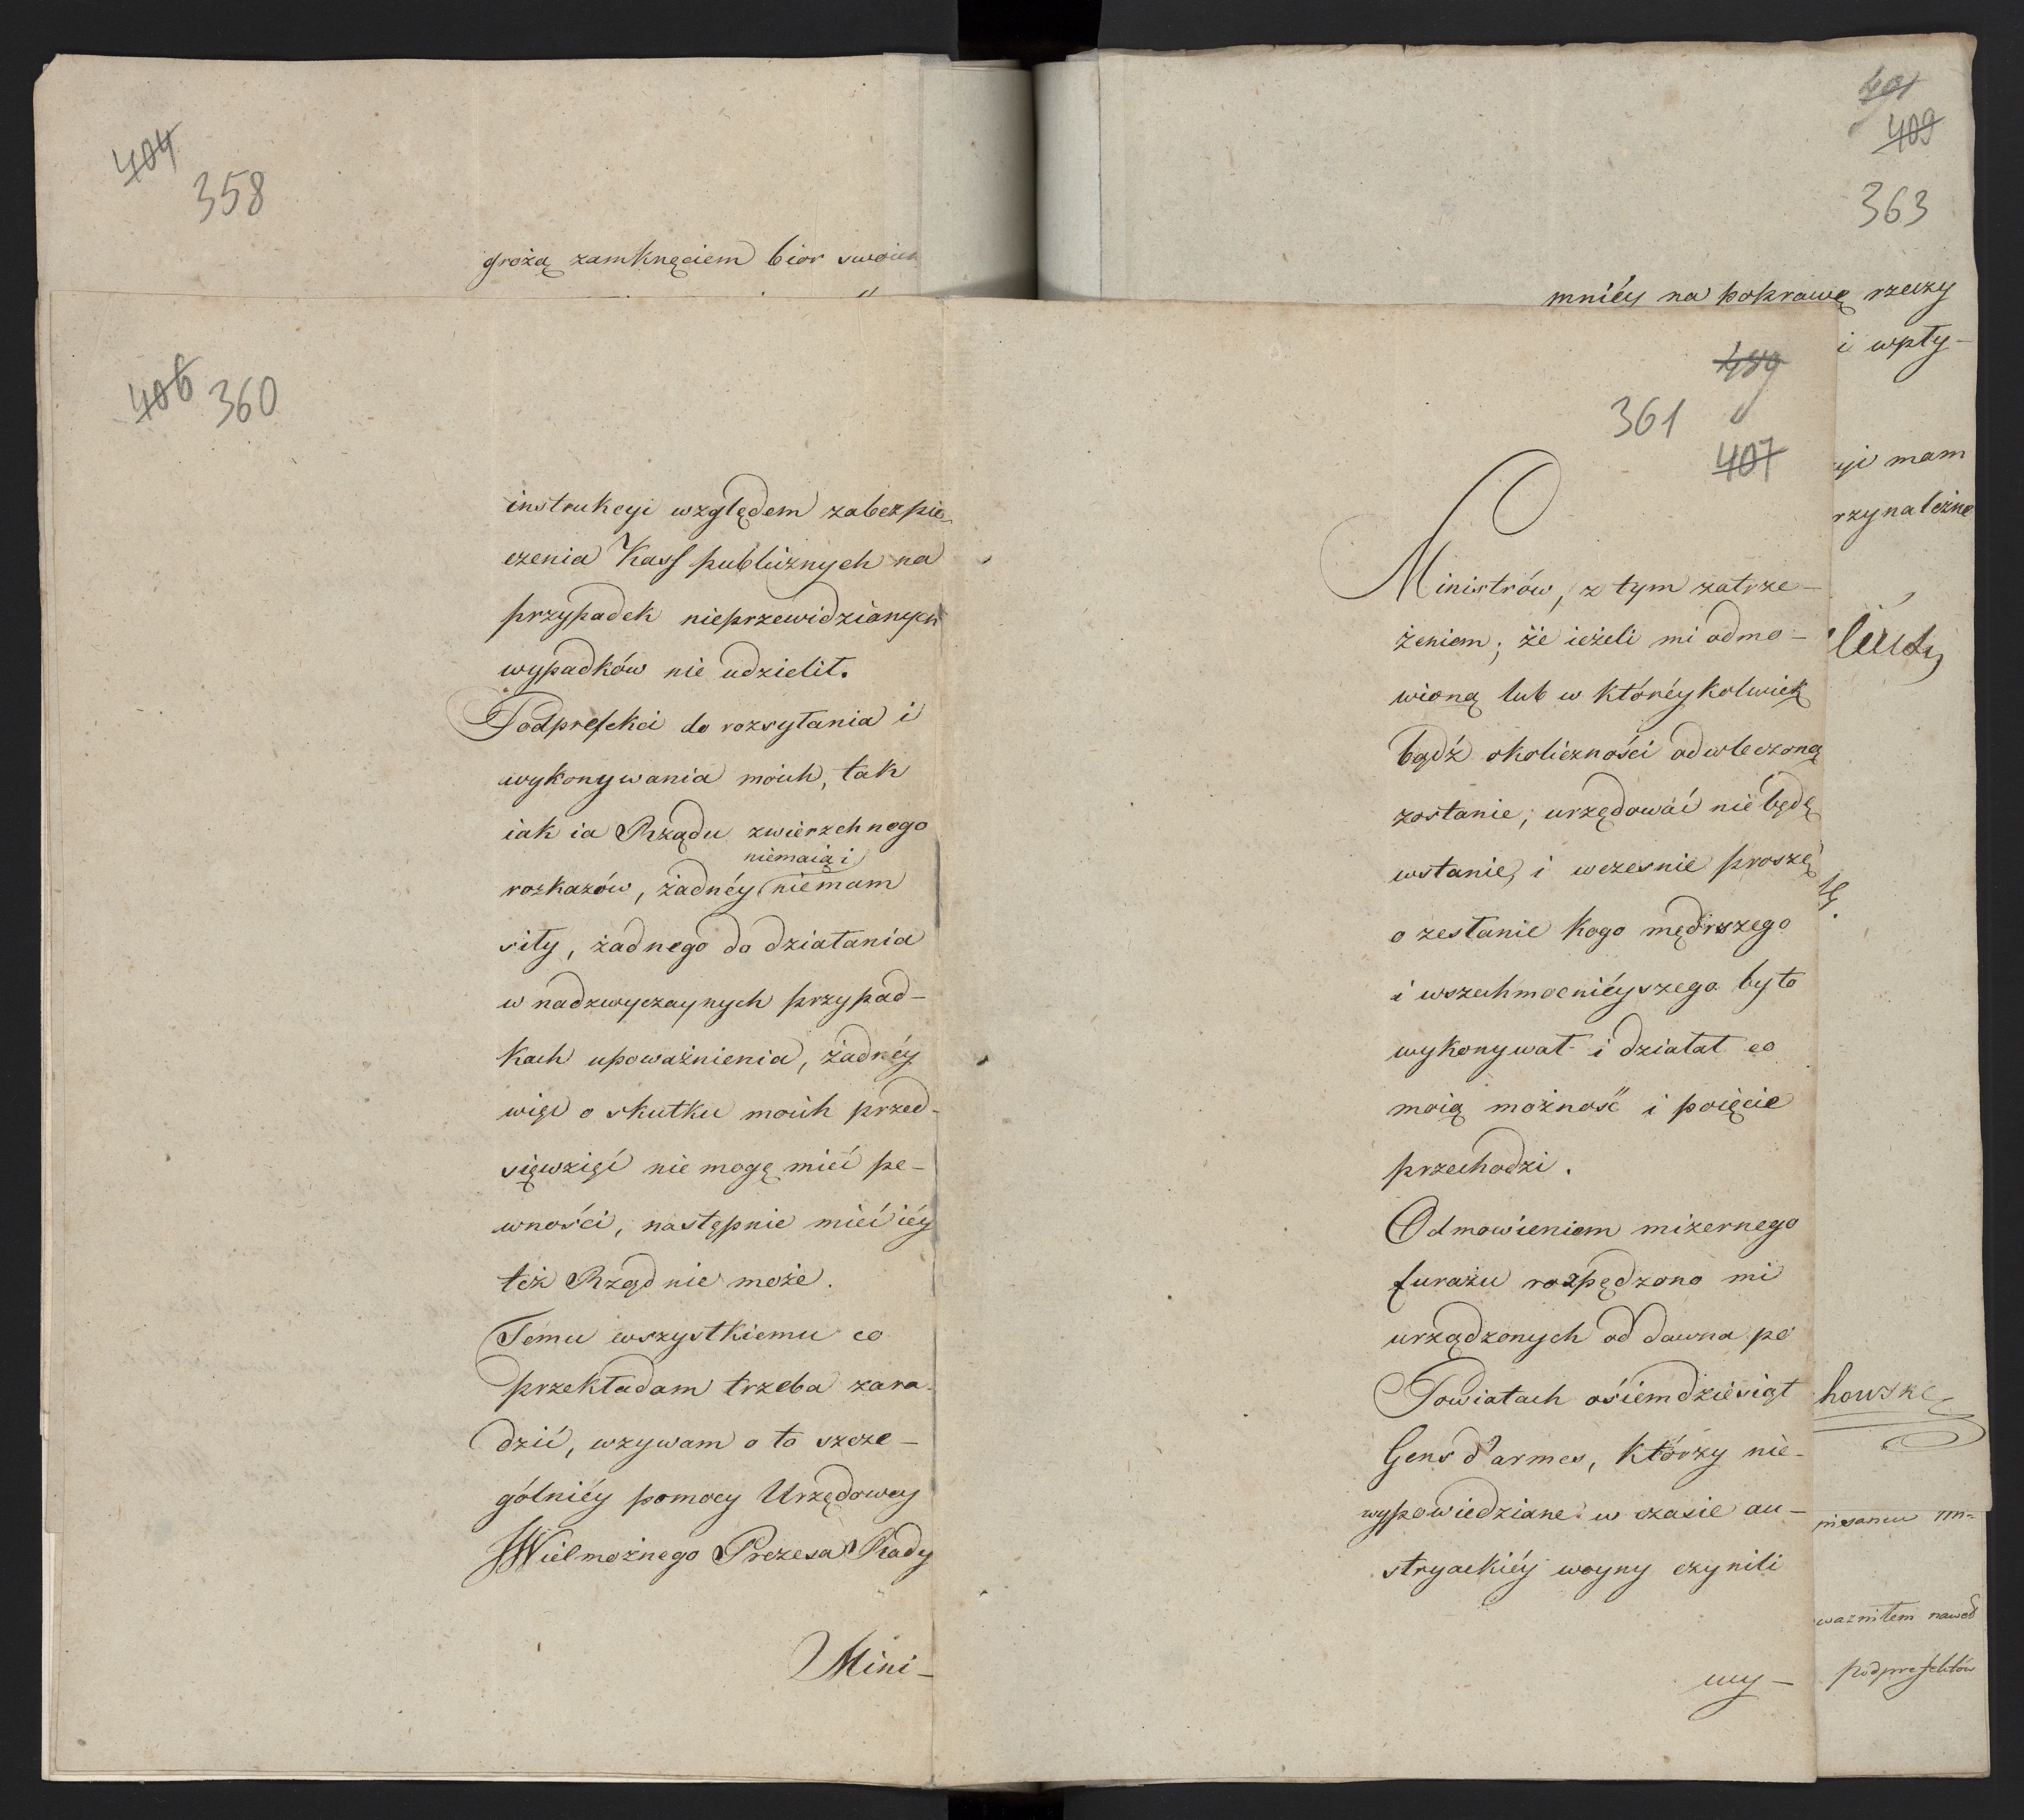 404
358
grożą zamknęciem biór swoich
406 360
instrukcyi względem zabezpie-
czenia Kass publicznych na
przypadek nieprzewidzianych
wypadków nie udzielił.
Podprefekci do rozsyłania i
wykonywania moich, tak
iak ia Rządu zwierzchnego
niemaią i
rozkazów, żadnéy niemam
siły, żadnego do działania
w nadzwyczaynych przypad-
kach upoważnienia, żadnéy
więc o skutku moich przed-
sięwzięć nie mogę mieć pe-
wności, następnie mieć iéy
też Rząd nie może.
Temu wszystkiemu co
przekładam trzeba zara-
dzić, wzywam o to szcze-
gólniéy pomocy Urzędowey
JWielmożnego Prezesa Rady
Mini-
361
407
Ministrów, z tym zatrze-
żeniem; że ieżeli mi odmo-
wioną lub w któréykolwiek
bądź okoliczności odwleczoną
zostanie; urzędować nie będę
wstanie, i wczesnie proszę
o zesłanie kogo mędrszego
i wszechmocniéyszego by to
wykonywał i działał co
moią możność i poięcie
przechodzi.
Odmowieniem mizernego
furażu rozpędzono mi
urządzonych od dawna po
Powiatach ośiemdziesiąt
Gens d'armes, którzy nie-
wypowiedziane w czasie au-
stryackiéy woyny czynili
wy-
401
409
363
mniéy na poprawę rzeczy
i wpły-
yi mam
rzynależne
howski
pisaniu im-
ważniłem nawet
podprefektów